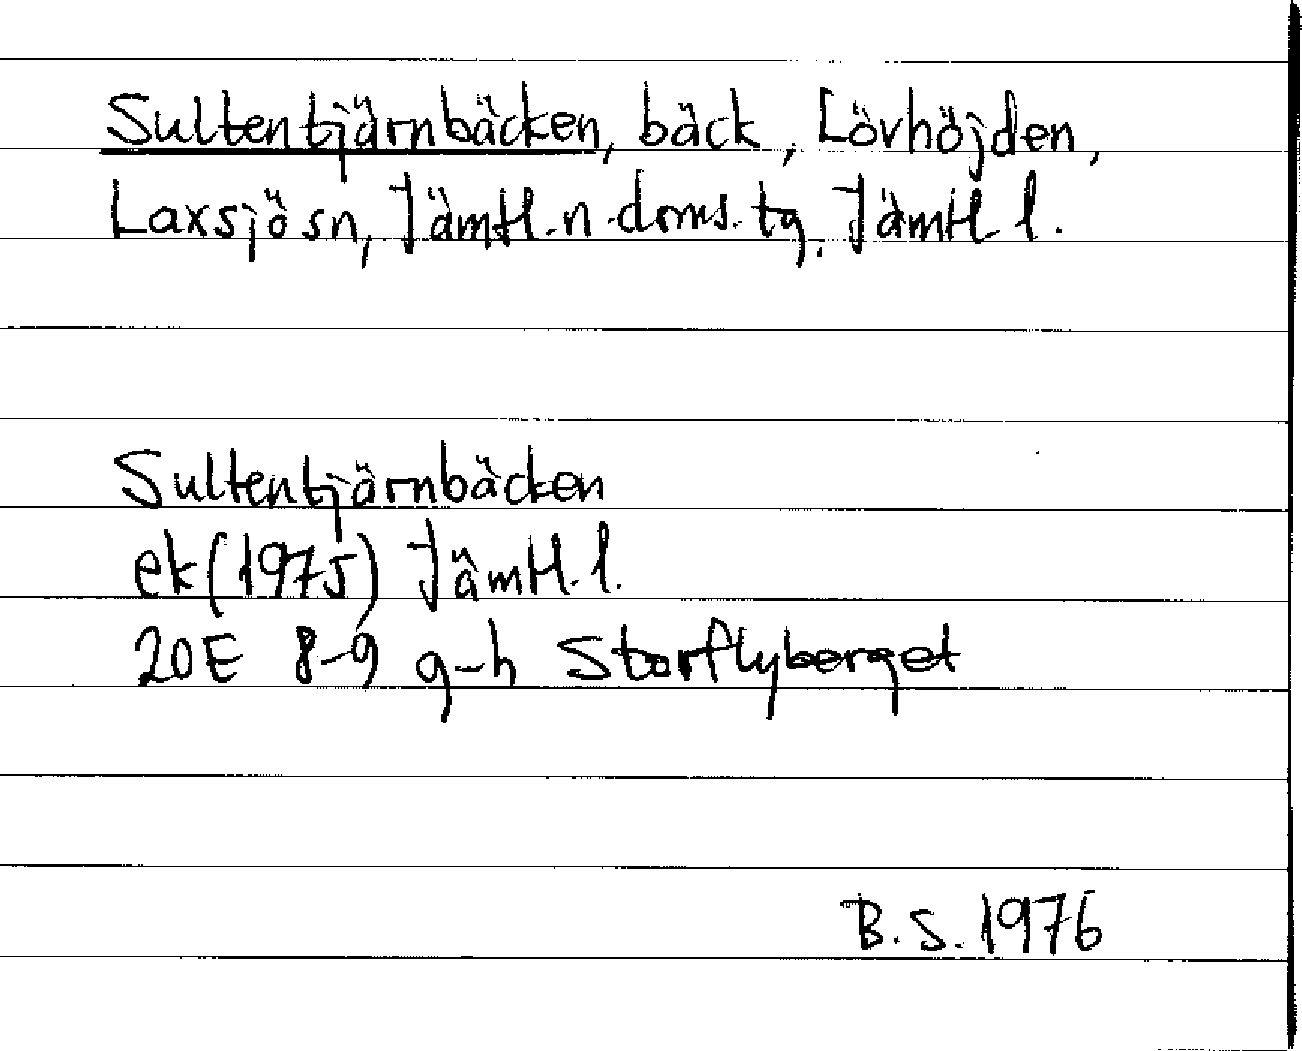 Sultentjärnbäcken, bäck, Lövhöjden,
Laxsjösn, Jämtl. n. doms. tg. Jämtl. l.
Sultentjärnbäcken
ek (1975) Jämtl. l.
20E 8-9 g-h Storflyberget
B.S. 1976